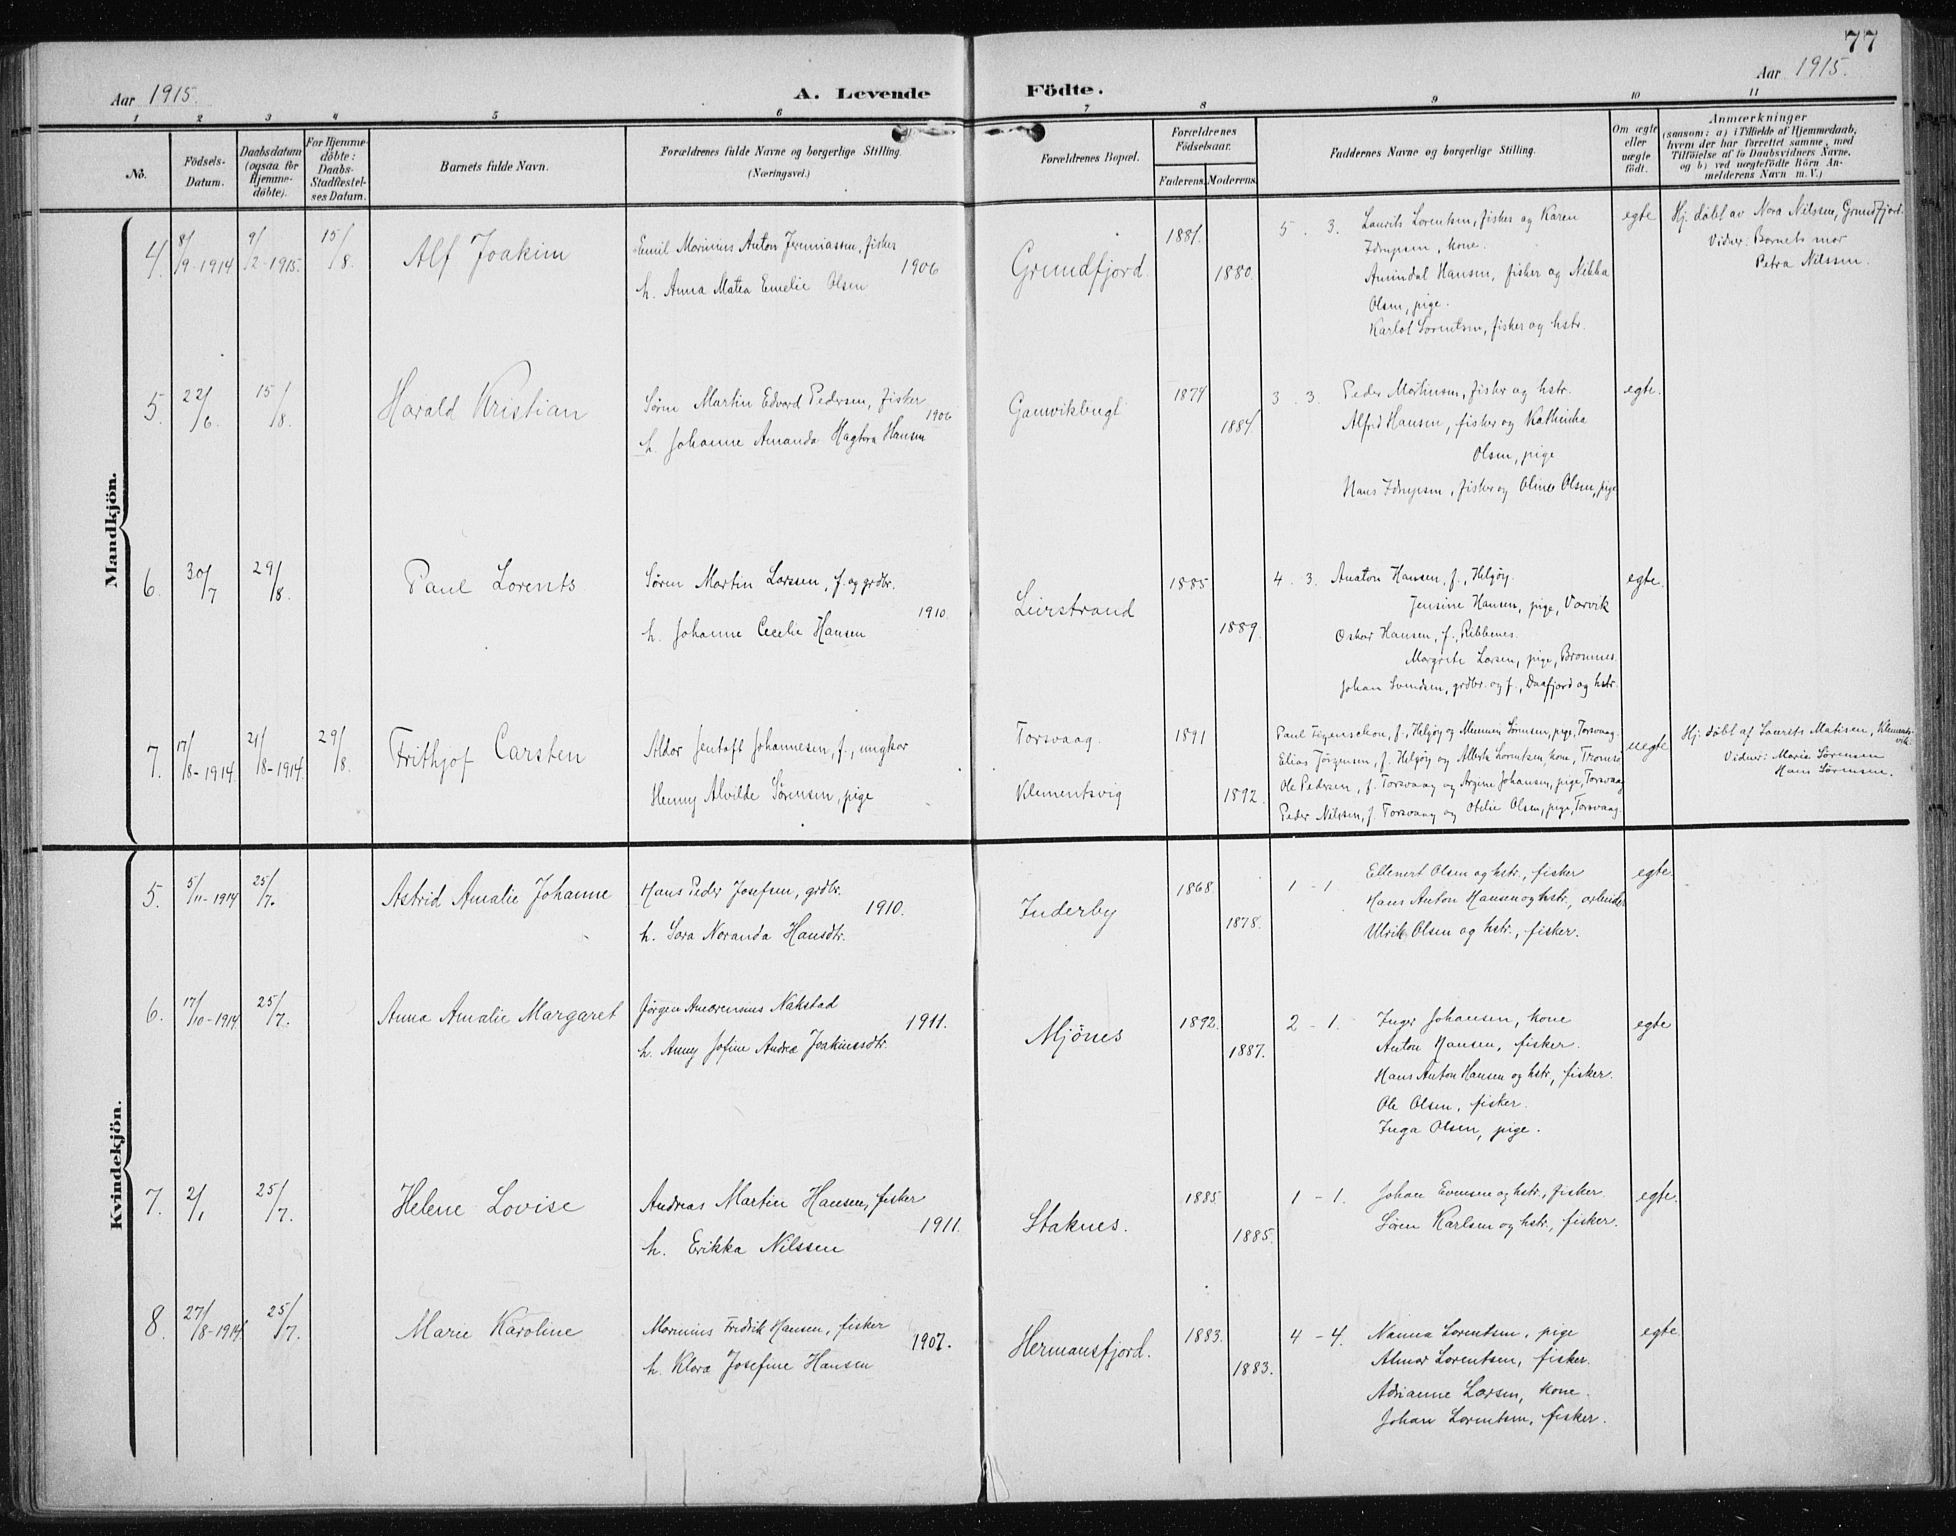 77
Aar 1915.
A. Levende Födte.
Aar 1915.
1 2 3 4 5 6 7 8 9 10 11
No.
Födsels-
Datum.
Daabsdatum
(ogsaa for
Hjemme-
döbte).
For Hjemme-
döbte:
Daabs-
Stadfæstel-
ses Datum.
Barnets fulde Navn.
Forældrenes fulde Navne og borgerlige Stilling.
(Næringsvei.)
Forældrenes Bopæl.
Forældrenes
Födselsaar.
Faderens. Moderens.
Faddernes Navne og borgerlige Stilling.
Om ægte
eller
uægte
födt.
Anmærkninger
(saasom: a) i Tilfælde af Hjemmedaab,
hvem der har forrettet samme, med
Tilföielse af to Daabsvidners Navne,
og b) ved uægtefödte Börn An-
melderens Navn m. V.)
Mandkjön.
4. 8/9-1914 9/2-1915. 15/8. Alf Joakim
Emil Marinius Anton Jeremiassen, fisker
h. Anna Matea Emelie Olsen 1906
Grundfjord. 1881. 1880.
5. 3. Laurits Lorentsen, fisker og Karen
Idrupsen, kone.
Amindal Hansen, fisker og Nikka
Olsen, pige.
Karlot Lorentsen, fisker og hstr.
egte
Hj. döbt av Nora Nilssen, Grundfjord.
Vidner: Barnets mor
Petra Nilssen.
5. 22/6. 15/8. Harald Kristian
Søren Martin Edvard Pedersen, fisker
h. Johanne Amanda Hagbora Hansen 1906
Gamvikbugt 1874 1884.
3. 3. Peder Mortensen, fisker og hstr.
Alfred Hansen, fisker og Kathinka
Olsen, pige
Hans Idrupsen, fisker og Oline Olsen, pige
egte.
6. 30/7 29/8. Paul Lorents
Søren Martin Larssen, f. og grdbr.
h. Johanne Cecelie Hansen 1910.
Leirstrand 1885 1889.
4. 3. Anaton Hansen, f., Helgøy.
Jensine Hansen, pige, Vorvik
Oskar Hansen, f., Ribbenes.
Margrete Larsen, pige, Bromnes.
Johan Svendsen, grdbr. og f., Daafjord og hstr.
egte.
7. 17/8-1914. 21/8-1914. 29/8. Frithjof Carsten
Aldor Jentoft Johannesen, f., ungkar
Henny Alvilde Sørensen, pige
Torsvaag.
Klementsvig
1891 1892.
Paul Isgensokon, f., Helgøy og Mimmi Sørensen, pige, Torsvaag
Elias Jörgensen, f. Helgøy og Alberte Lorentsen, kone, Tromsø
Ole Pedersen, f. Torsvaag og Argine Johansen, pige, Torsvaag
Peder Nilssen, f. Torsvaag og Otelie Olsen, pige, Torsvaag.
uegte
Hj. döbt af Laurits Matisen, Klements-
vik.
Vidner: Marie Sørensen
Hans Sørensen.
Kvindekjön.
5. 5/11-1914 25/7. Astrid Amalie Johanne
Hans Peder Josefsen, grdbr.
h. Sara Noranda Hansdtr. 1910.
Inderby 1868 1878.
1 - 1. Ellenert Olsen og hstr., fisker
Hans Anton Hansen og hstr., arbeider
Ulrik Olsen og hstr., fisker.
egte
6. 17/10-1914. 25/7. Anna Amalie Margaret
Jørgen Amorenius Nakstad
h. Anny Jofine Andrea Joakimsdtr. 1911.
Mjönes 1892. 1887.
2 - 1. Inger Johansen, kone
Anton Hansen, fisker.
Hans Anton Hansen og hstr., fisker.
Ole Olsen, fisker.
Inga Olsen, pige.
egte
7. 2/1 25/7. Helene Lovise
Andreas Martin Hansen, fisker
h. Erikka Nilssen 1911.
Staknes. 1885 1885.
1 - 1. Johan Evensen og hstr., fisker.
Søren Karlsen og hstr., fisker.
egte.
8. 27/8-1914. 25/7. Marie Karoline
Marinius Fredrik Hansen, fisker
h. Klara Josefine Hansen 1907.
Hermansfjord. 1883. 1883.
4 - 4. Nanna Lorentsen, pige
Almar Lorentsen, fisker.
Adrianne Larsen, kone.
Johan Lorentsen, fisker.
egte.